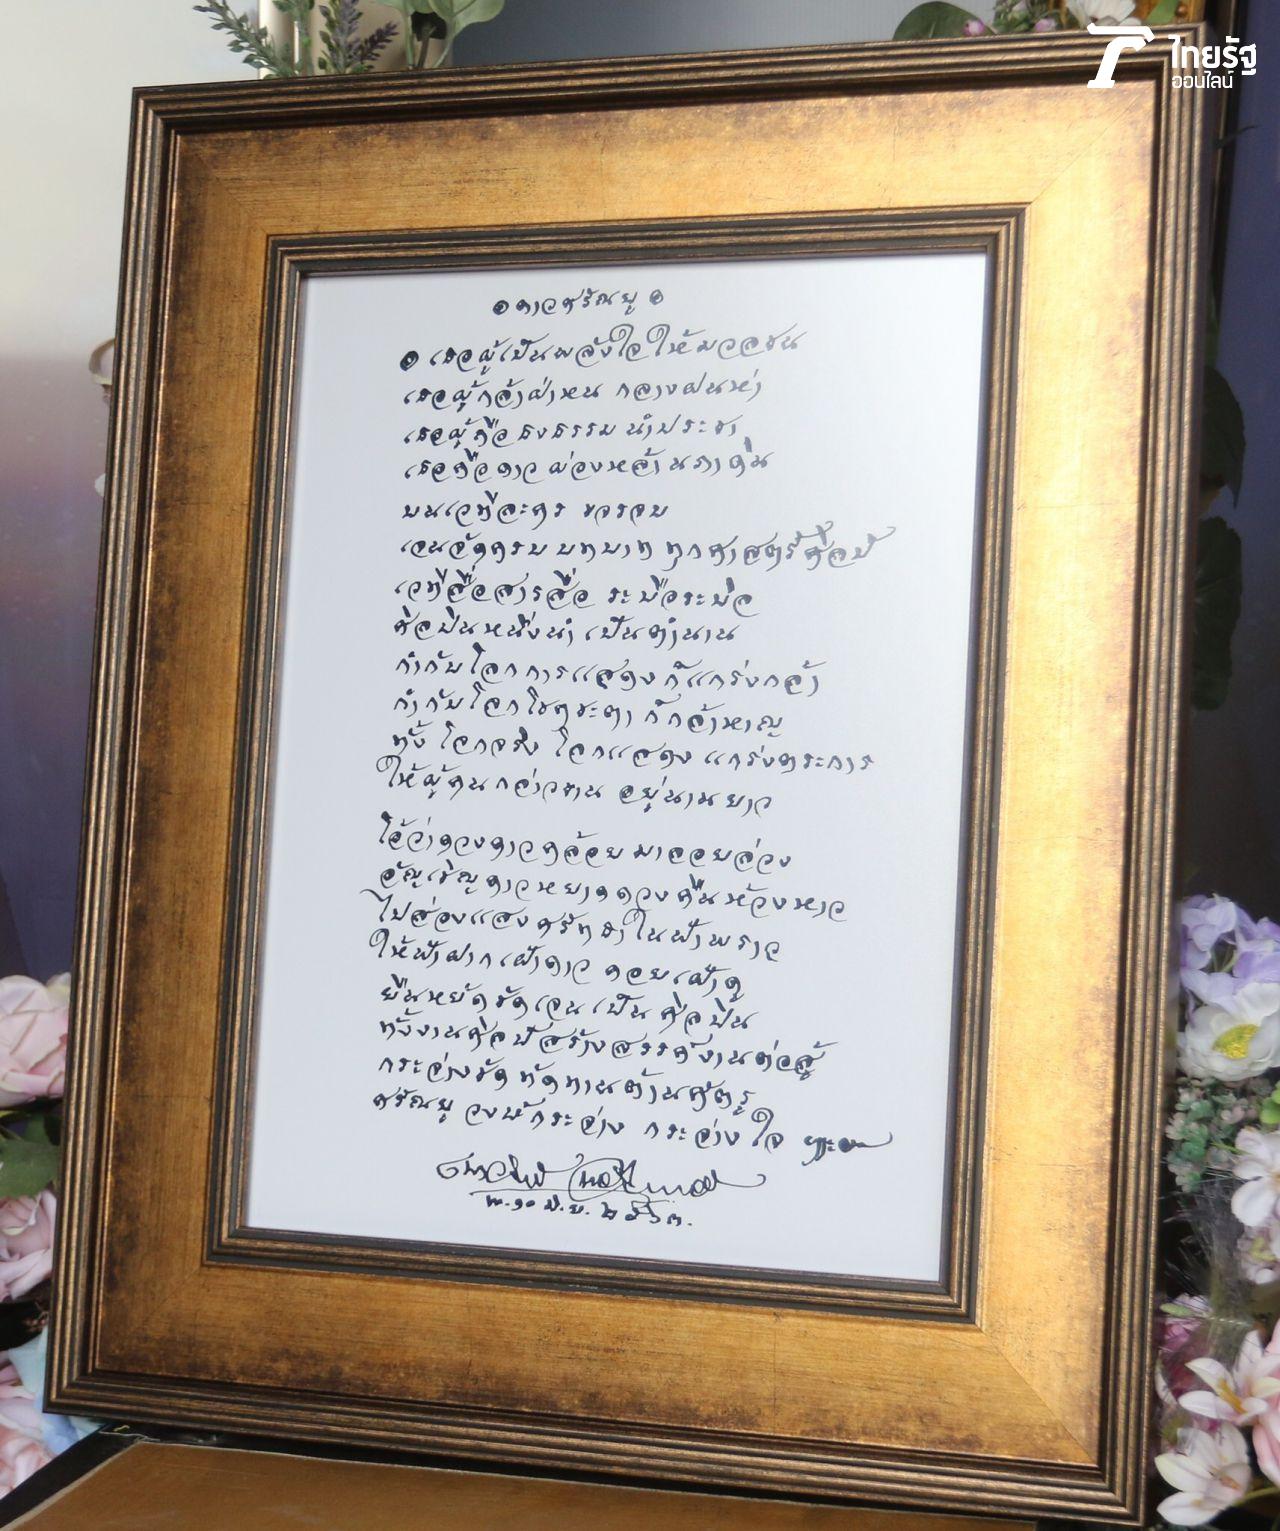 ไทยรัฐ
ออนไลน์
๏ ดาวศรัณยู ๏
๏ เธอผู้เป็นพลังใจให้มวลชน
เธอผู้กล้าฝ่าหน กลางฝนห่า
เธอผู้ถือธงธรรม นำประชา
เธอคือดาวผ่องหล้านภาคืน
บนเวทีละคร ขจรจบ
เจนจัดครบ บทบาท ทุกศาสตร์ศิลป์
เวทีสื่อสารสื่อ ระบือระบิล
ศิลปินหนึ่งนำ เป็นตำนาน
กำกับโลกการแสดง ก็แกร่งกล้า
กำกับโลกโชคชะตา ก็กล้าหาญ
ทั้งโลกจริง โลกแสดง แกร่งตระการ
ให้ผู้คนกล่าวขาน อยู่นานยาว
โอ้ว่าดวงดาวคล้อย มาลอยล่วง
อัญเชิญดาวหยาดดวง คืนห้วงหาว
ไปส่องแสงศรัทธาในฟ้าพราว
ให้ฟ้าฝากเฝ้าดาว คอยเฝ้าดู
ยืนหยัดชัดเจนเป็นศิลปิน
ทั้งงานศิลป์สร้างสรรค์งานต่อสู้
กระจ่างชัด ทัดทานต้านศัตรู
ศรัณยู วงษ์กระจ่าง กระจ่างใจ
เนาวรัตน์ พงษ์ไพบูลย์
พ.๑๐ มิ.ย. ๒๕๖๓.